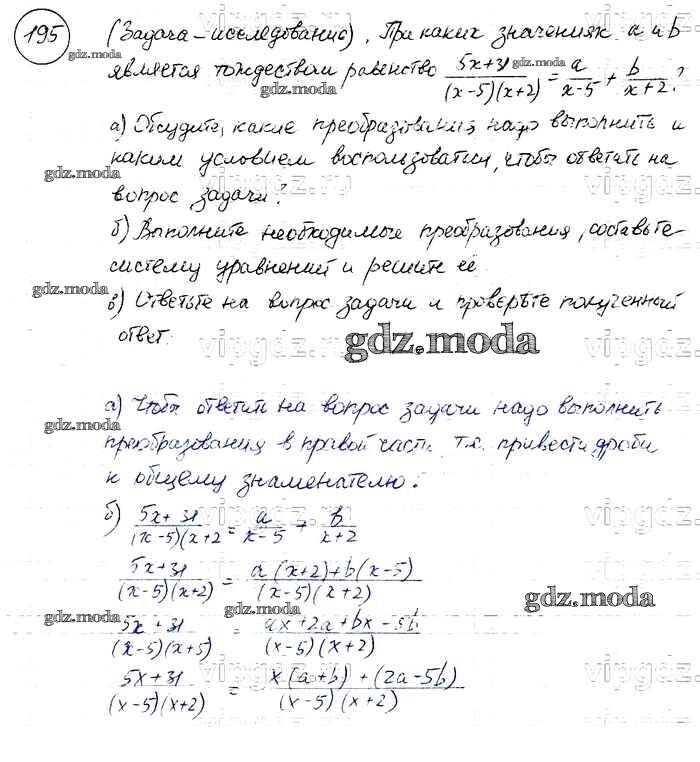 195 (Задача-исследование). При каких значениях a и b
является тождеством равенство (5x+31)/((x-5)(x+2)) = a/(x-5) + b/(x+2)?
gdz.moda gdz.moda
а) Обсудите, какие преобразования надо выполнить и
каким условием воспользоваться, чтобы ответить на
gdz.moda
вопрос задачи? vipgdz.ru
б) Выполните необходимые преобразования, составьте
систему уравнений и решите её
gdz.moda
в) Ответьте на вопрос задачи и проверьте полученный
ответ.
vipgdz.ru gdz.moda vipgdz.ru
а) Чтобы ответить на вопрос задачи надо выполнить
gdz.moda
преобразования в правой части т.е. привести дроби
к общему знаменателю.
vipgdz.ru
б) (5x+31)/((x-5)(x+2) = a/(x-5) + b/(x+2)
gdz.moda
(5x+31)/((x-5)(x+2)) = (a(x+2)+b(x-5))/((x-5)(x+2))
gdz.moda gdz.moda gdz.moda
(5x+31)/((x-5)(x+5)) = (ax+2a+bx-5b)/((x-5)(x+2))
(5x+31)/((x-5)(x+2)) = (x(a+b)+(2a-5b))/((x-5)(x+2))
vipgdz.ru